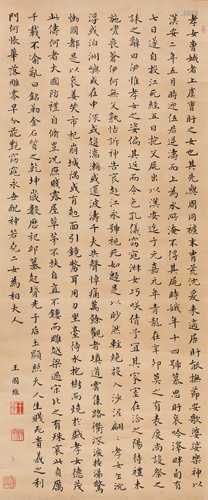 孝女曹娥者上虞曹盱之女也其先與周同祖末胄荒沈爰來適居盱能撫節安歌婆娑樂神以
漢安二年五月時迎伍君逆濤而上為水所淹不得其屍時娥年十四號慕思盱哀吟澤畔旬有
七日遂自投江死經五日抱父屍出以漢安迄于元嘉元年青龍在辛卯莫之有表度尚設祭
誄之辭曰伊惟孝女曄曄之姿偏其返而令色孔儀窈窕淑女巧笑倩兮宜其家室在洽之陽待禮未
施嗟喪蒼伊何無父孰怙訴神告哀赴江永號視死如歸是以眇然輕絕投入沙泥翩翩孝女乍沈
乍浮或泊洲嶼或在中流或趨湍瀨或還波濤千夫失聲悼痛萬餘觀者填道雲集路衢流淚掩涕驚
慟國都是以哀姜哭市杞崩城隅或有剋面引鏡剺耳用刀坐臺待水抱樹而燒於戲孝女德茂
此儔何者大國防禮自修豈況庶賤露屋草茅不扶自直不鏤而雕越梁過宋比之有殊哀此貞厲
千載不渝亂曰銘勒金石質之乾坤歲數曆祀丘墓起墳光于后土顯照天人生賤死貴義之利
門何悵華落雕零早分葩艷窈窕永世配神若堯二女為相夫人
王國維